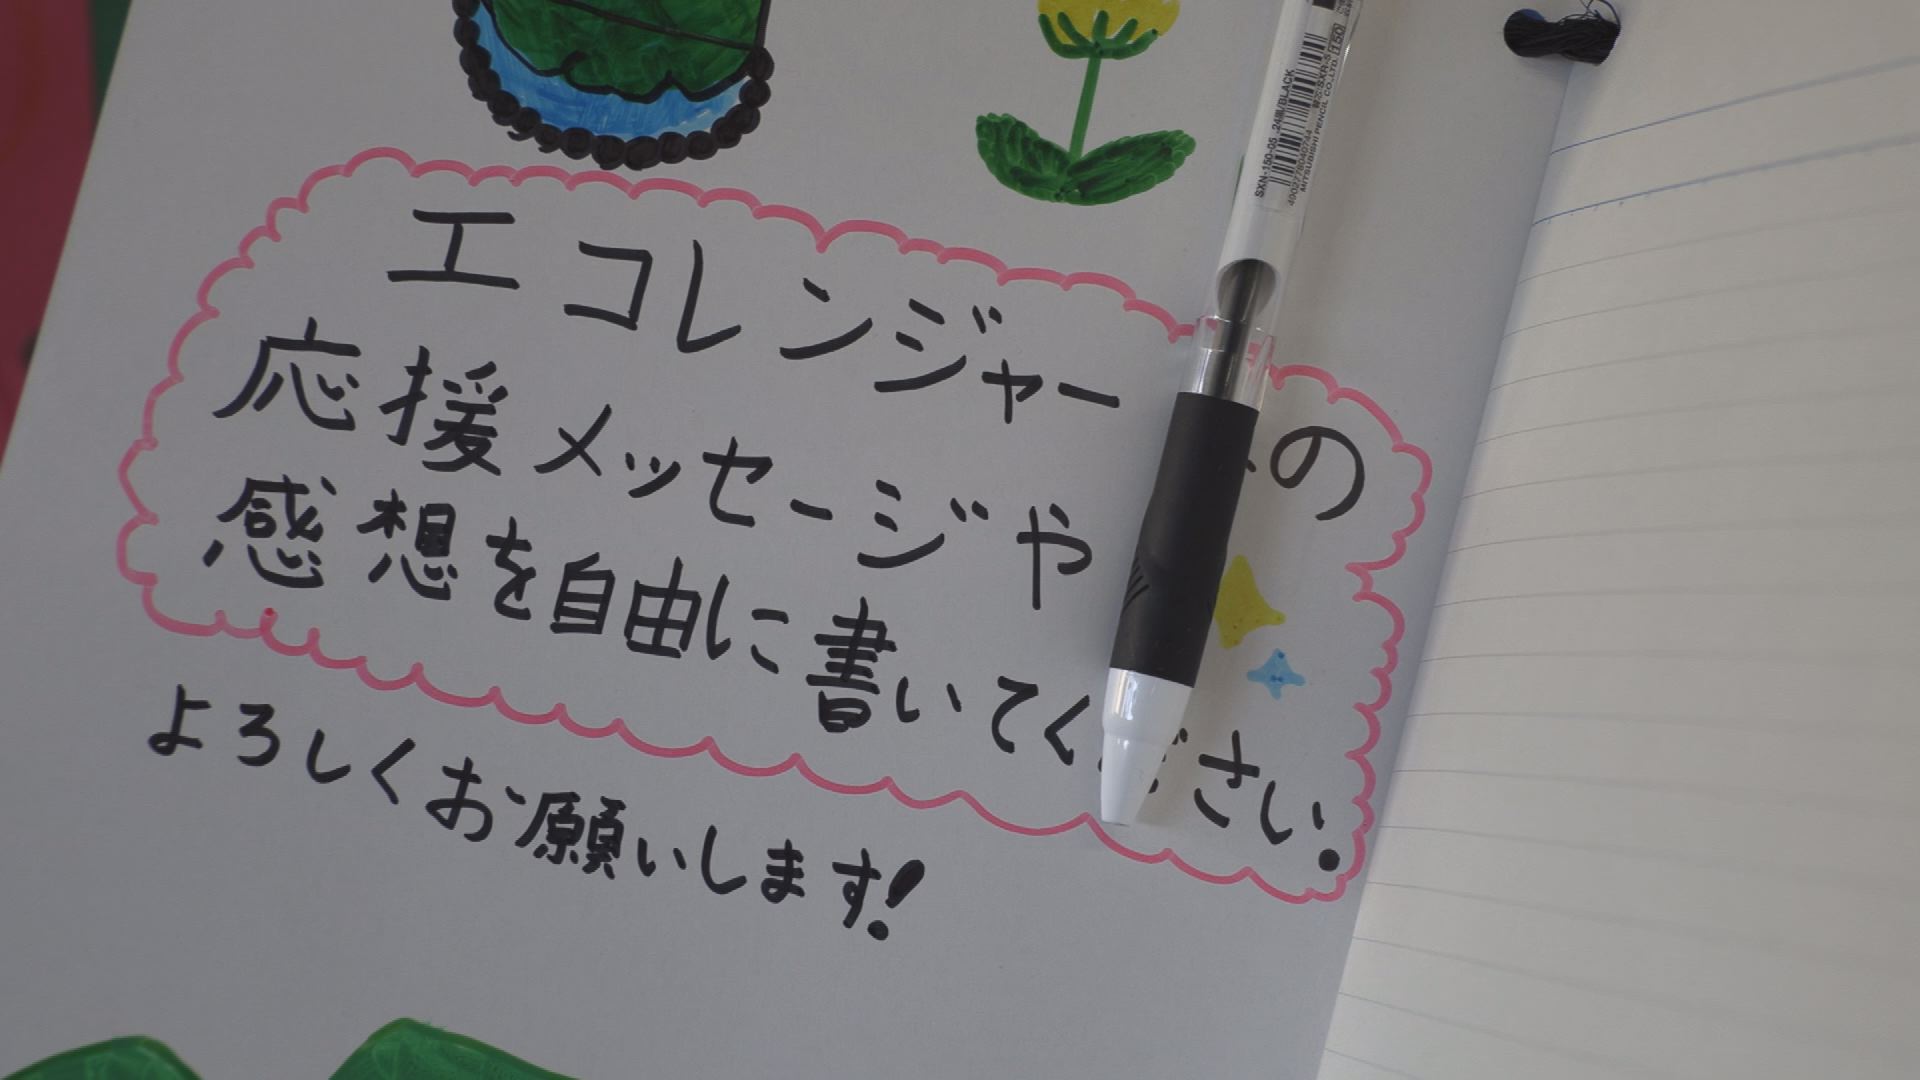 エコレンジャーの
応援メッセージや
感想を自由に書いてください.
よろしくお願いします!
SXN-150-05 .24黒/BLACK
MITSUBISHI PENCIL CO.,LTD.